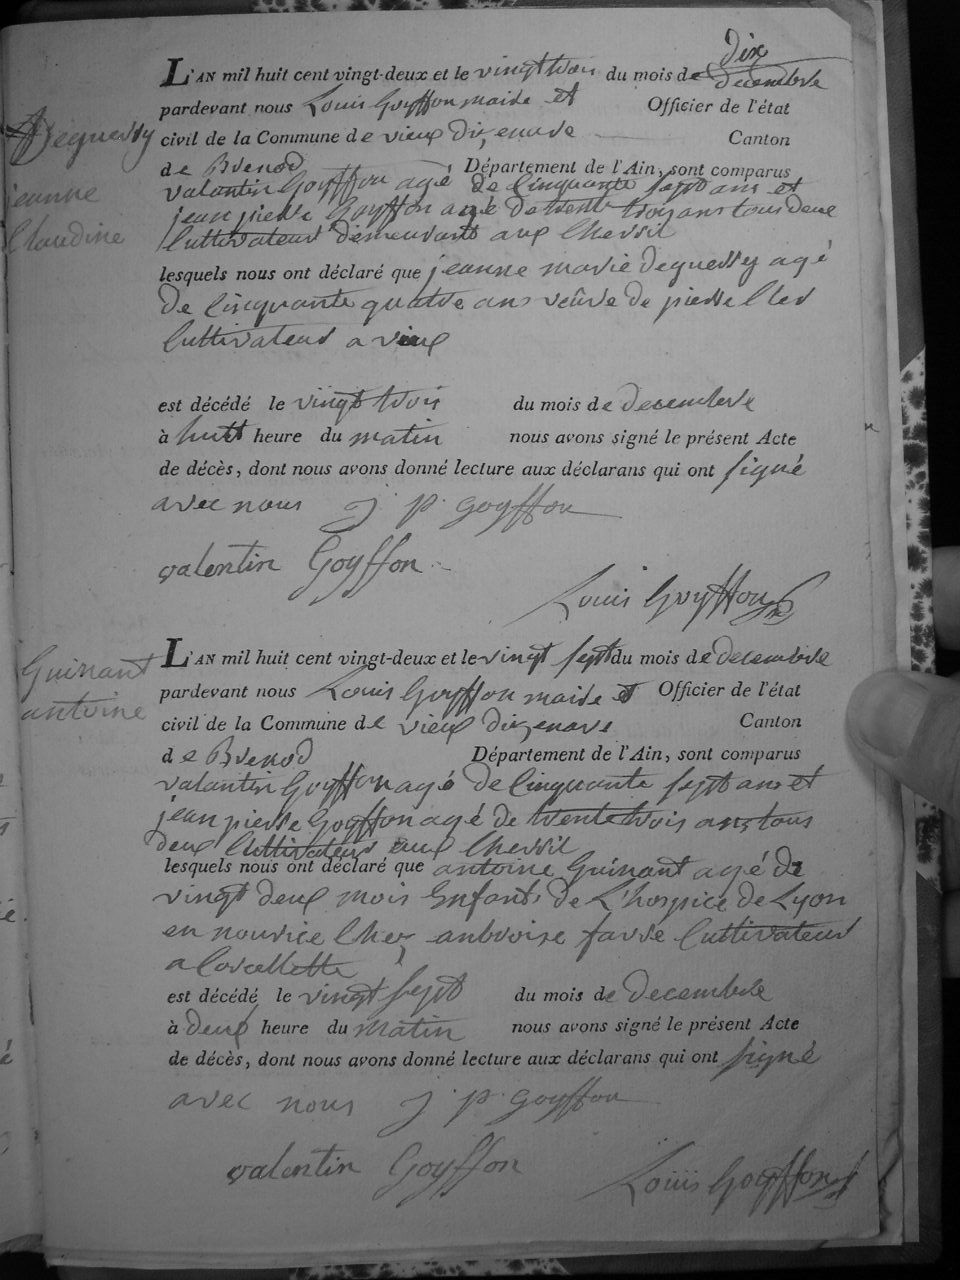 dix
L'AN mil huit cent vingt-deux et le vingt trois du mois de decembre
pardevant nous Louis Goyffon maire et Officier de l'état
Deguerry
civil de la Commune de vieux dizenave Canton
de Brenod Département de l'Ain, sont comparus
jeanne
valantin Goyffon agé de Cinquante sept ans et
jean pierre Goyffon agé de trente trois ans tous deux
Claudine
Cultivateurs demeurants aux
lesquels nous ont déclaré que jeanne marie deguerry agé
de Cinquante quatre ans veuve de pierre
Cultivateur a vieux
est décédé le vingt trois du mois de decembre
à huit heure du matin nous avons signé le présent Acte
de décès, dont nous avons donné lecture aux déclarans qui ont signé
avec nous j. p. goyffon
valentin Goyffon
Louis Goyffon
Guinant
L'AN mil huit cent vingt-deux et le vingt sept du mois de decembre
pardevant nous Louis Goyffon maire et Officier de l'état
antoine
civil de la Commune de vieux dizenave Canton
de Brenod Département de l'Ain, sont comparus
valantin Goyffon agé de Cinquante sept ans et
jean pierre Goyffon agé de trente trois ans tous
deux Cultivateurs aux
lesquels nous ont déclaré que antoine Guinant agé de
vingt deux mois Enfants de L'hospice de Lyon
en nourice Chez anbroise favre Cultivateur
a Corcellette
est décédé le vingt sept du mois de Decembre
à deux heure du matin nous avons signé le présent Acte
de décès, dont nous avons donné lecture aux déclarans qui ont signé
avec nous j. p. goyffon
valentin Goyffon
Louis Goyffon